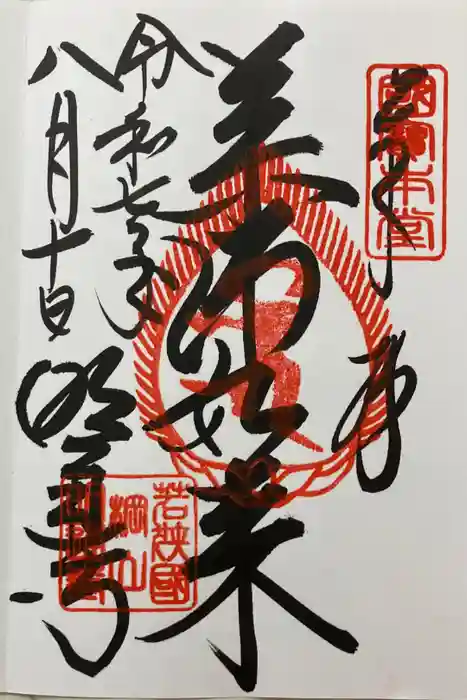 奉拝
國寶本堂
薬師如来
令和七年
八月十日
明通寺
若狭國
棡山